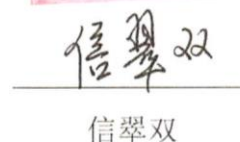 信翠双
信翠双